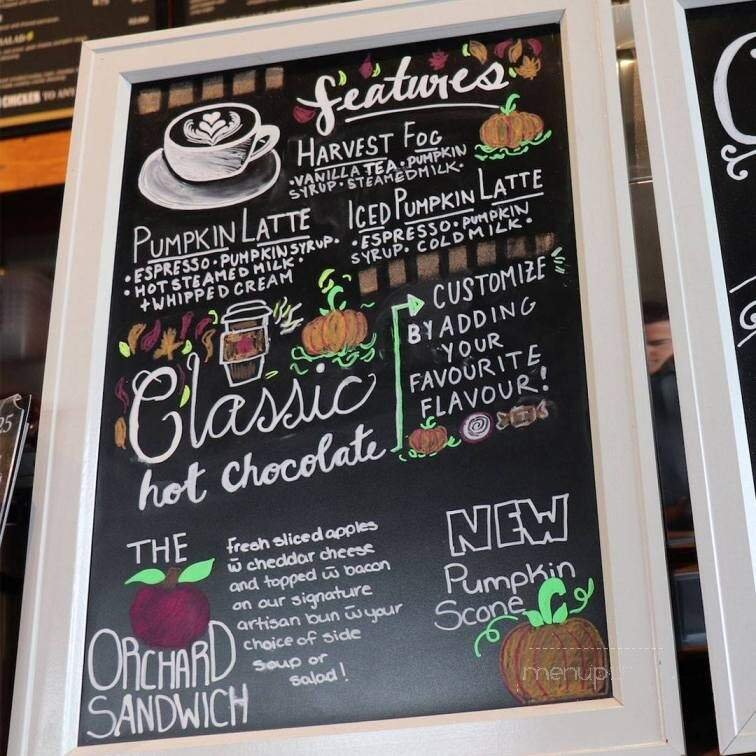 Features
HARVEST FOG
• VANILLA TEA • PUMPKIN
SYRUP • STEAMED MILK •
PUMPKIN LATTE
• ESPRESSO • PUMPKIN SYRUP •
• HOT STEAMED MILK •
+ WHIPPED CREAM
ICED PUMPKIN LATTE
• ESPRESSO • PUMPKIN
SYRUP • COLD MILK •
Classic
hot chocolate
CUSTOMIZE
BY ADDING
YOUR
FAVOURITE
FLAVOUR!
THE
ORCHARD
SANDWICH
fresh sliced apples
w̄ cheddar cheese
and topped w̄ bacon
on our signature
artisan bun w̄ your
choice of side
soup or
salad!
NEW
Pumpkin
Scone
menupix